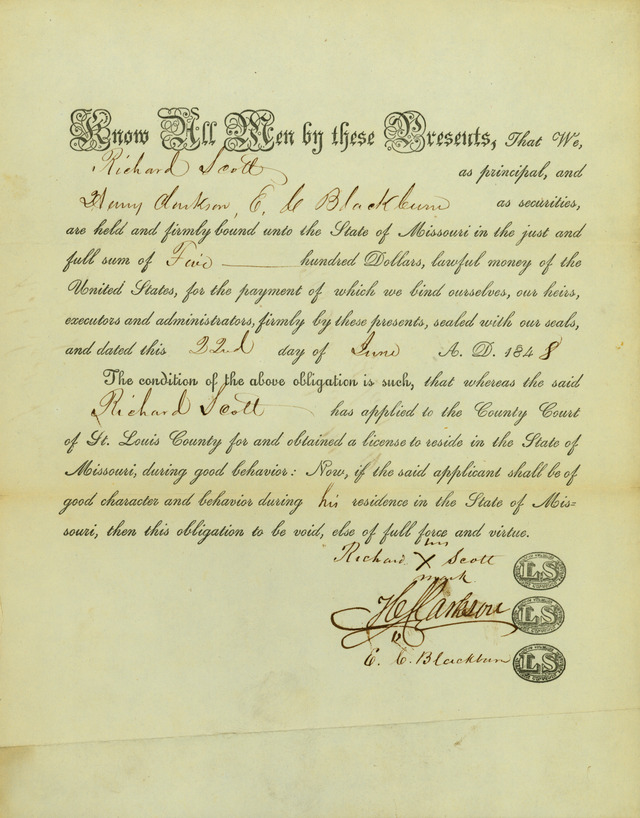 Know All Men by these Presents, That We,
Richard Scott as principal, and
Henry Clarkson, E. C Blackburn as securities,
are held and firmly bound unto the State of Missouri in the just and
full sum of Five hundred Dollars, lawful money of the
United States, for the payment of which we bind ourselves, our heirs,
executors and administrators, firmly by these presents, sealed with our seals,
and dated this 22nd day of June A. D. 1848
The condition of the above obligation is such, that whereas the said
Richard Scott has applied to the County Court
of St. Louis County for and obtained a license to reside in the State of
Missouri, during good behavior: Now, if the said applicant shall be of
good character and behavior during his residence in the State of Mis=
souri, then this obligation to be void, else of full force and virtue.
his
Richard X Scott LS
mark
H Clarkson LS
E. C. Blackburn LS